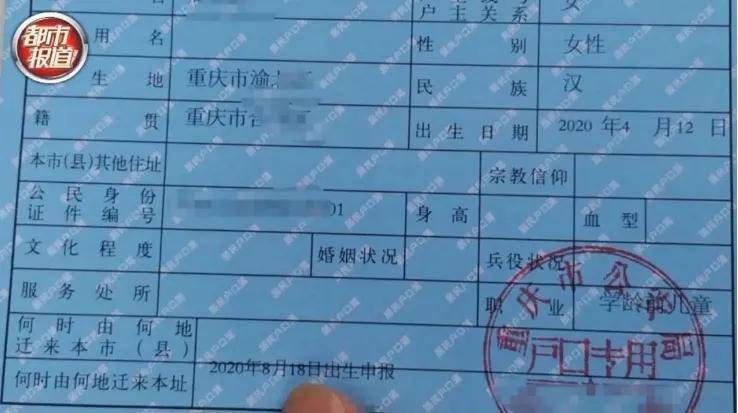 都市
报道
户主关系 女
用名 性别 女性
生地 重庆市渝北 民族 汉
籍贯 重庆市 出生日期 2020 年4 月12 日
本市(县)其他住址 宗教信仰
公民身份
证件编号 01 身高 血型
文化程度 婚姻状况 兵役状况
服务处所 职业 学龄前儿童
何时由何地
迁来本市(县)
何时由何地迁来本址 2020年8月18日出生申报
重庆市公安局
户口专用
居民户口簿